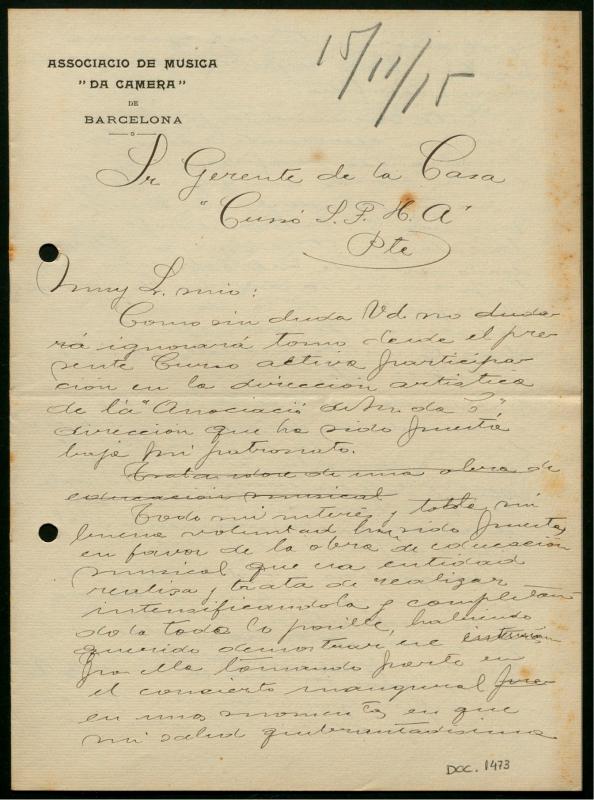 ASSOCIACIO DE MUSICA
"DA CAMERA"
DE
BARCELONA
15/11/15
Sr Gerente de la Casa
"Cussó S. F. H. A"
Pte
Muy Sr. mio:
Como sin duda Vd. no duda
rá ignorará tomo desde el pre-
sente Curso activa participa-
ción en la dirección artística
de la "Associació de M. da C",
dirección que ha sido puesta
bajo mi patronato.
Tratandose de una obra de
educación musical
Todo mi interés y toda mi
buena voluntad han sido puestas
en favor de la obra de educación
musical que esa entidad
realisa y trata de realizar
intensificandola y completan-
dola todo lo posible, habiendo
querido demostrar mi interés
por ella tomando parte en
el concierto inaugural
en unos momentos en que
mi salud quebrantadisima
DOC. 1473